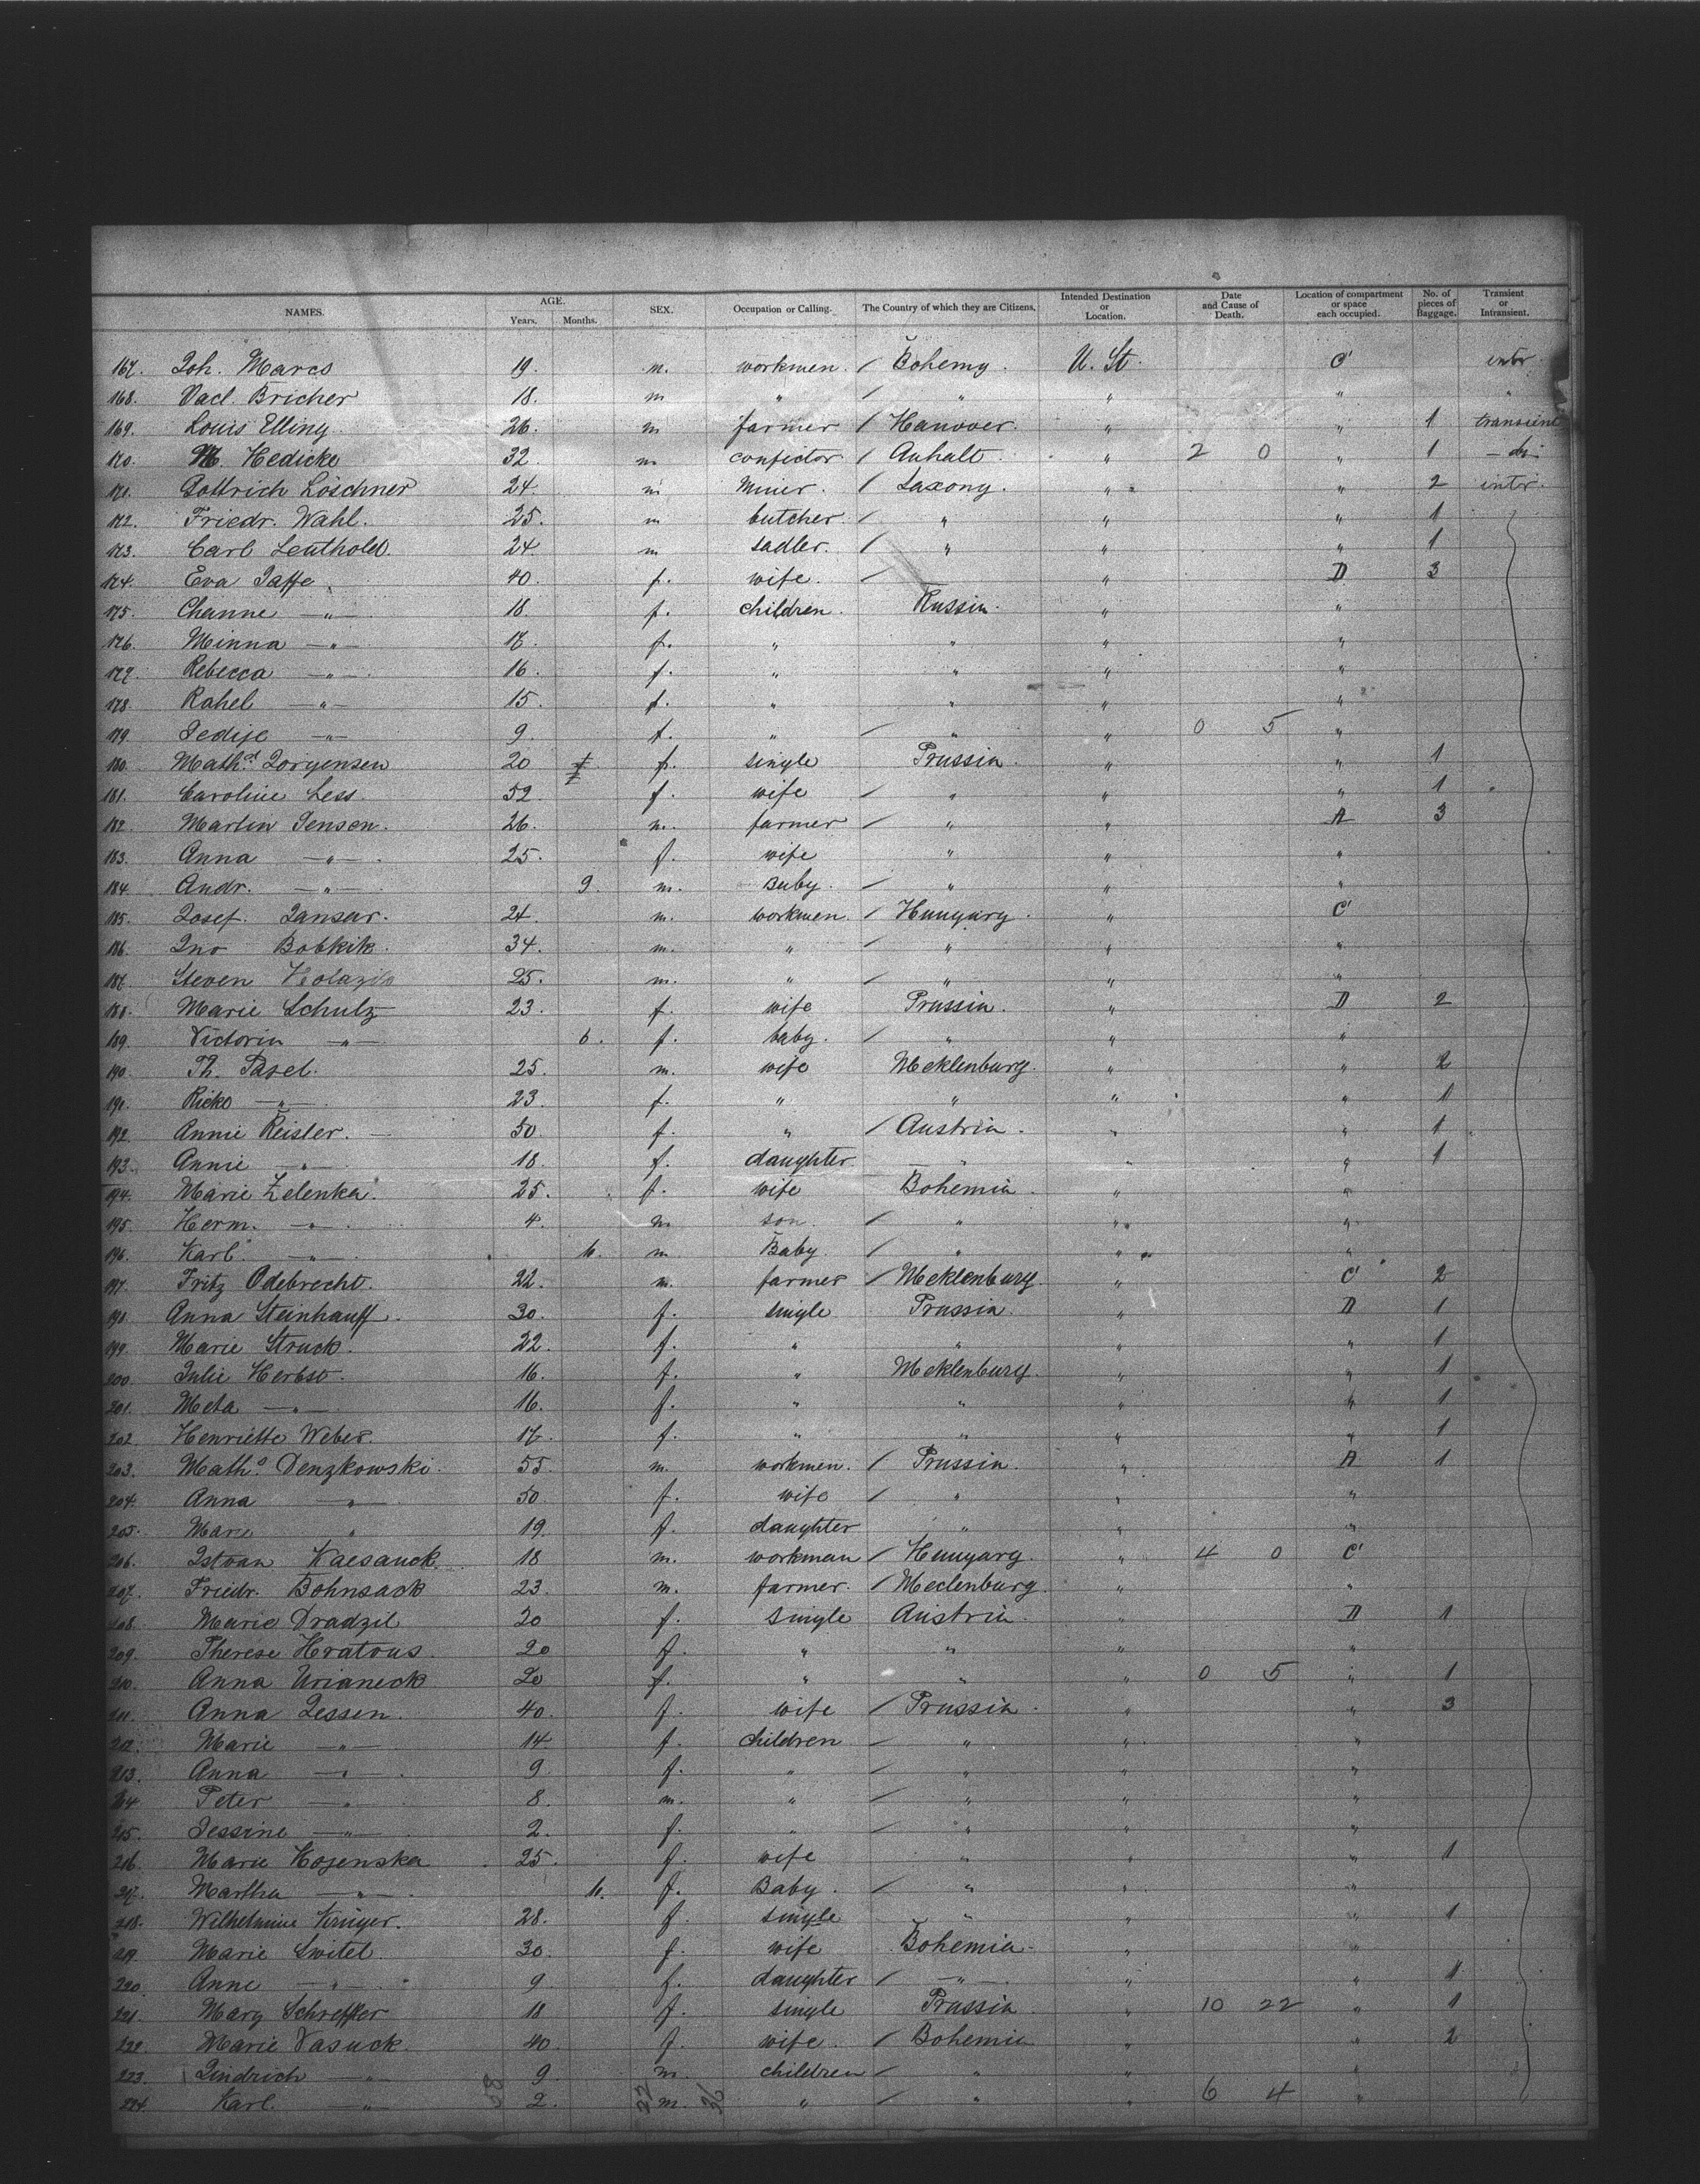 NAMES. AGE. Years. Months. SEX. Occupation or Calling. The Country of which they are Citizens. Intended Destination or Location. Date and Cause of Death. Location of compartment or space each occupied. No. of pieces of Baggage. Transient or Intransient.
167. Joh. Marcs 19. m. workmen. / Bohemy. U. St. C intr.
168. Vacl. Bricher 18. m " / " " " "
169. Louis Elling. 26. m farmer / Hanover. " " 1 transient
170. M. Hedicke 32. m confictor / Anhalt. " 2 0 " 1 — do —
171. Gottrich Löschner 24. m Miner. / Saxony. " " 2 intr.
172. Friedr. Wahl. 25. m butcher. / " " " 1
173. Carl Leuthold. 24. m sadler. / " " " 1
174. Eva Jaffe 40. f. wife. / " D 3
175. Channe —"— 18. f. children. Russia. " "
176. Minna —"— 17. f. " " " "
177. Rebecca —"— 16. f. " " " "
178. Rahel —"— 15. f. " " " "
179. Jedije —"— 9. f. " / " " 0 5 "
180. Math. Jorgensen 20 f. single Prussia. " " 1
181. Caroline Less. 52. f. wife / " " " 1
182. Martin Jensen. 26. m. farmer / " " A 3
183. Anna —"— 25. f. wife " " "
184. Andr. —"— 9. m. Baby. / " " "
185. Josef. Jansar. 24. m. workmen. / Hungary. " C
186. Jno Bobkik. 34. m. " / " " "
187. Steven 25. m. " / " " "
188. Marie Schulz 23. f. wife Prussia. " D 2
189. Victoria —"— 6. f. baby. / " " "
190. Th. Pasel. 25. m. wife Mecklenburg. " " 2
191. Ricke —"— 23. f. " " " " 1
192. Annie Reisler. — 50. f. " / Austria. " " 1
193. Annie —"— 18. f. daughter —"— " " 1
194. Marie Zelenka. 25. f. wife Bohemia. " "
195. Herm. —"— 4. m. son / " " "
196. Karl —"— 11. m Baby. / " " "
197. Fritz Odebrecht. 22. m. farmer / Mecklenburg. " C 2
198. Anna Steinhauff. 30. f. single Prussia. " D 1
199. Marie Struck. 22. f. " " " " 1
200. Julie Herbst. 16. f. " Mecklenburg. " " 1
201. Meta —"— 16. f. " " " " 1
202. Henriette Weber. 17. f. " " " " 1
203. Math. Denzkowski. 55. m. workmen. / Prussia. " A 1
204. Anna —"— 50. f. wife / " " "
205. Marie " 19. f. daughter " " "
206. Istvan Kaesauck. 18 m. workman / Hungary. " 4 0 C
207. Friedr. Bohnsack 23. m. farmer. / Meclenburg. " "
208. Marie Dradzil 20 f. single Austria. " D 1
209. Therese Hratous. 20 f. " " " "
210. Anna Urianeck 20 f. " " " 0 5 " 1
211. Anna Jessen. 40. f. wife / Prussia. " " 3
212. Marie —"— 14 f. children / " " "
213. Anna —"— 9. f. " / " " "
214. Peter —"— 8. m. " / " " "
215. Jessine —"— 2. f. " / " " "
216. Marie Kosenska 25. f. wife " " " 1
217. Martha —"— 11. f. Baby. / " " "
218. Wilhelmine Krüger. 28. f. single " " " 1
219. Marie Switel. 30. f. wife Bohemia. " "
220. Anne —"— 9. f. daughter / —"— " " 1
221. Mary Schreffler 18 f. single Prussia " 10 22 " 1
222. Marie Vasuck. 40. f. wife. / Bohemia " " 2
223. Jindrich —"— 9 m. children / " " "
224. Karl. —"— 2. m. " / " " 6 4 "
58 22 36